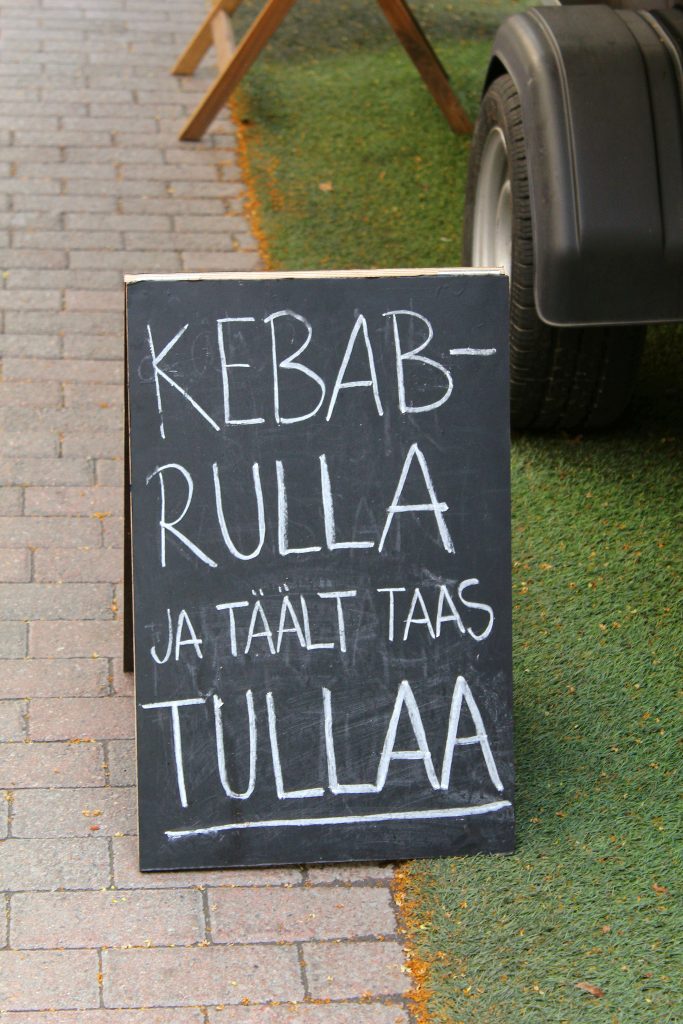 KEBAB-
RULLA
JA TÄÄLT TAAS
TULLAA